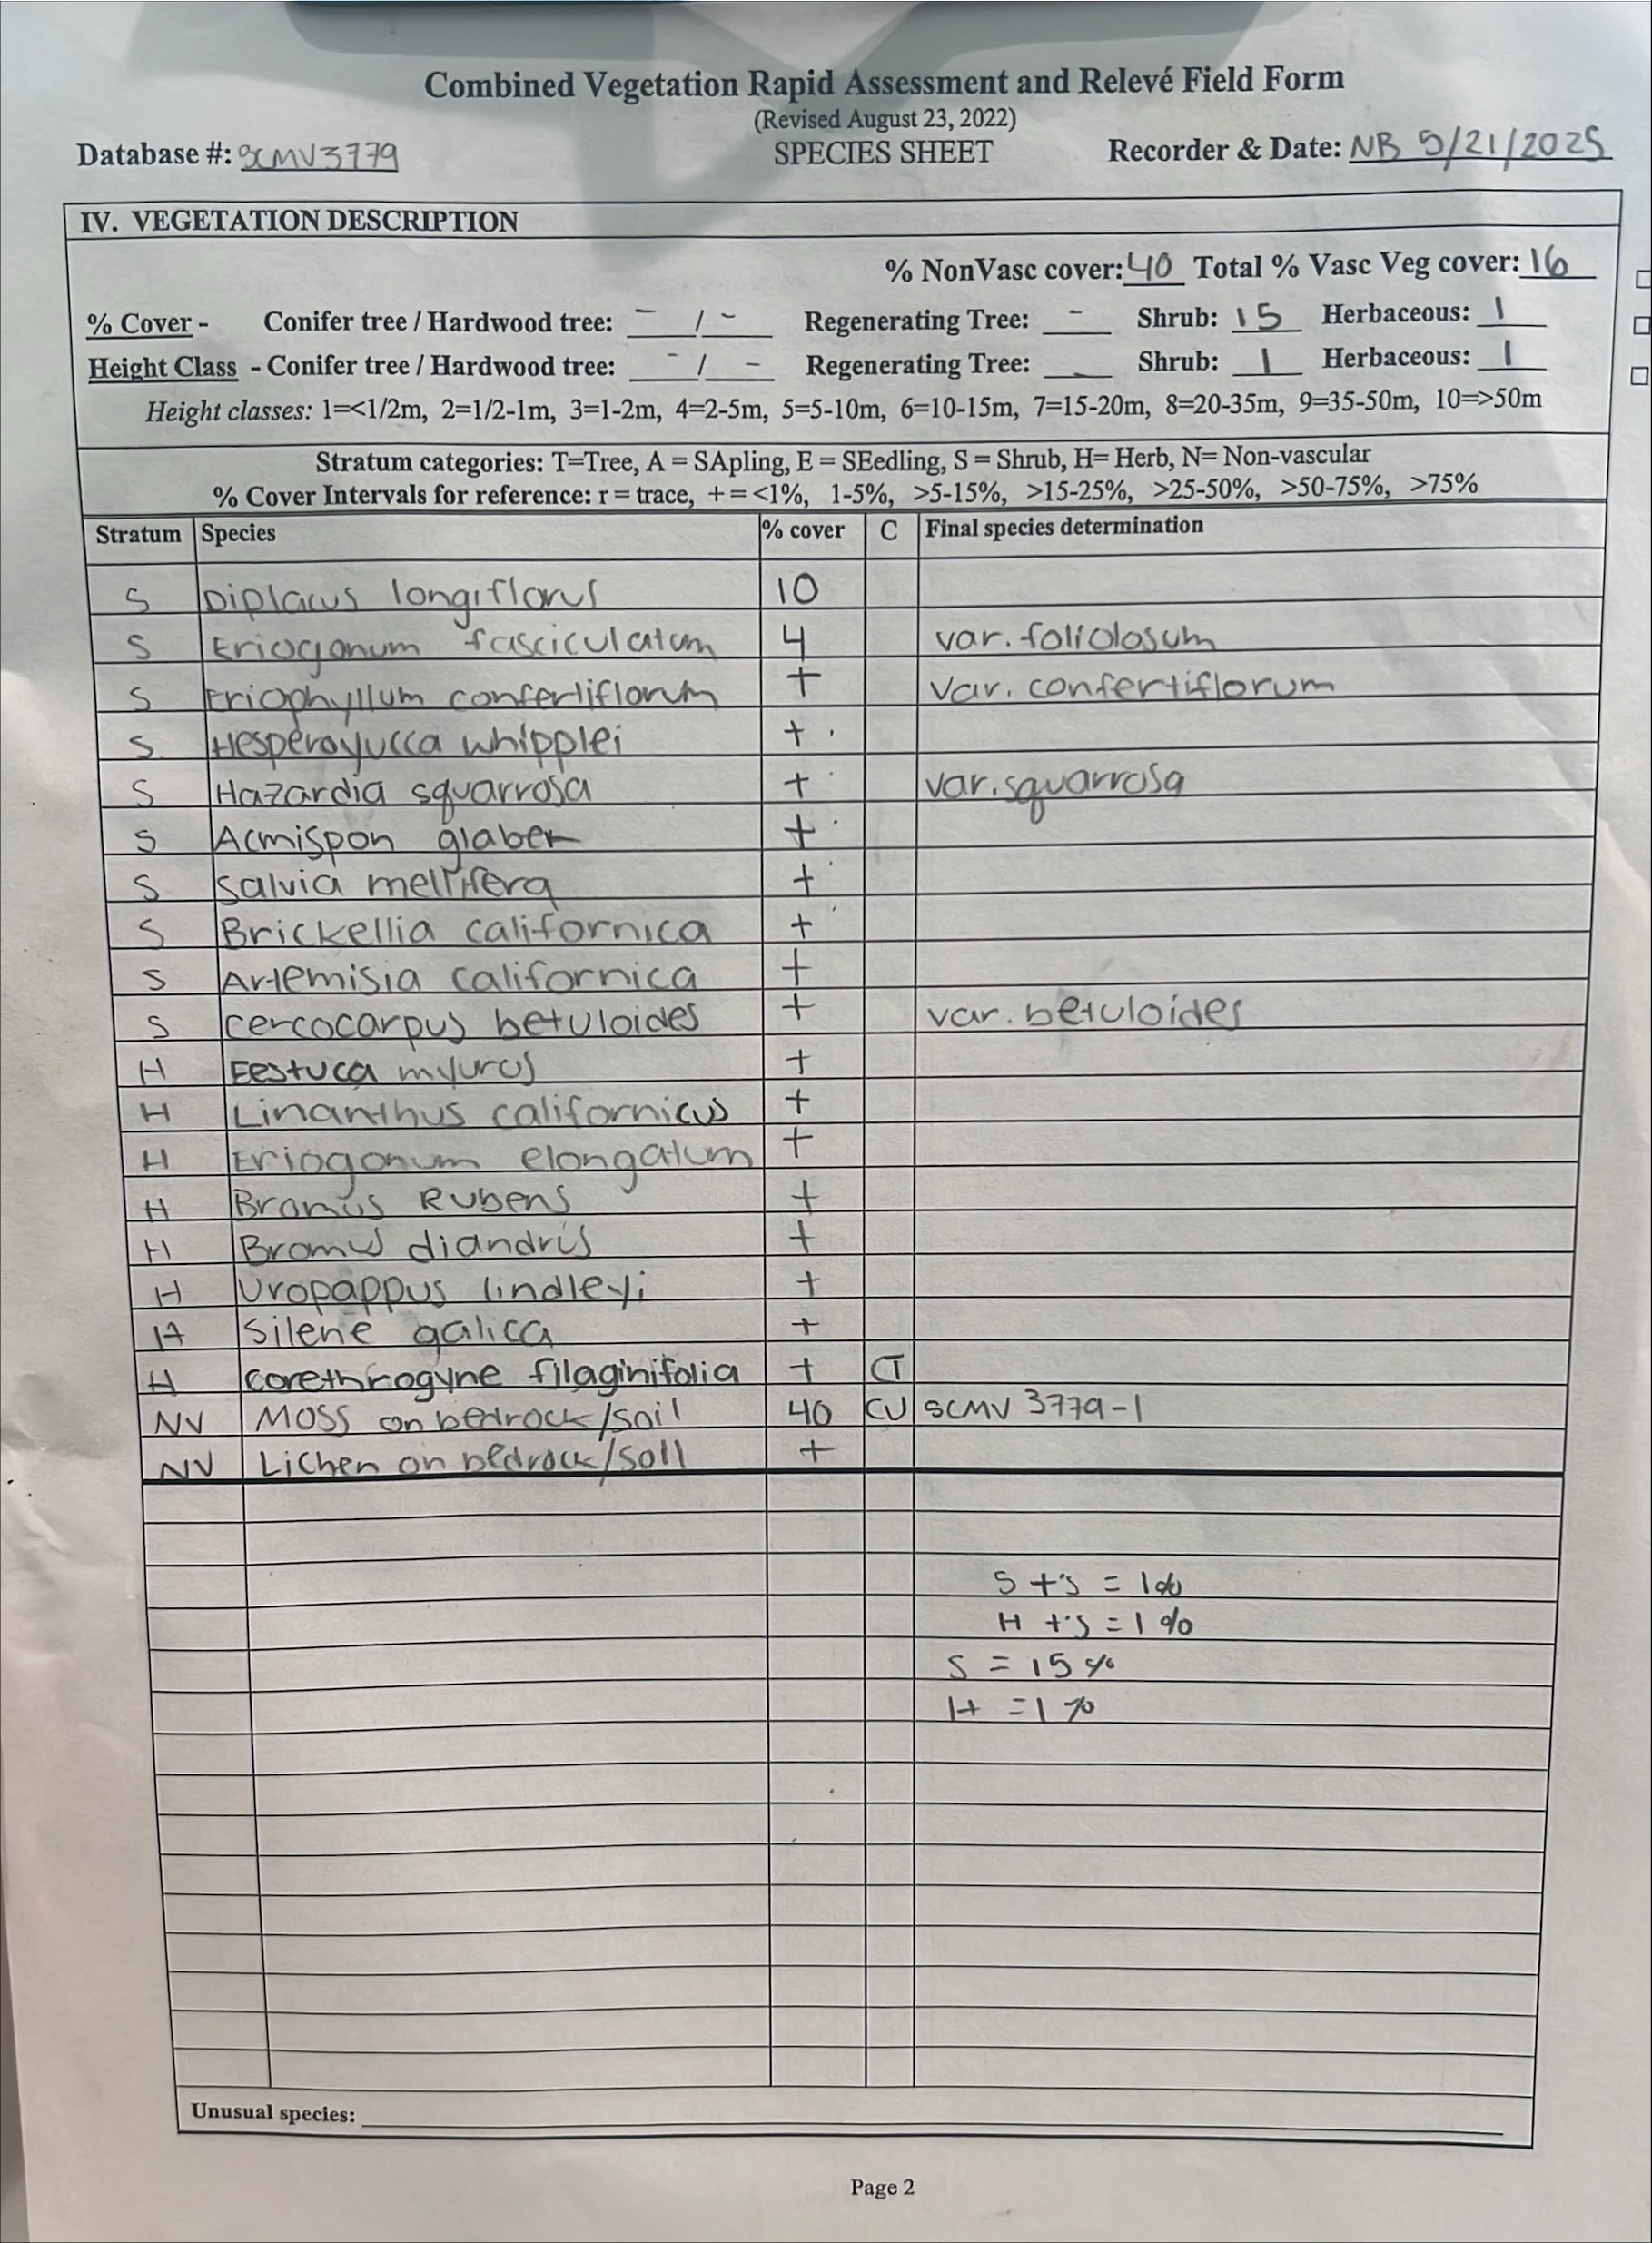 Combined Vegetation Rapid Assessment and Relevé Field Form
(Revised August 23, 2022)
Database #: SCMV3779 SPECIES SHEET Recorder & Date: NB 5/21/2025
IV. VEGETATION DESCRIPTION
% NonVasc cover: 40 Total % Vasc Veg cover: 16
% Cover - Conifer tree / Hardwood tree: - / - Regenerating Tree: - Shrub: 15 Herbaceous: 1
Height Class - Conifer tree / Hardwood tree: - / - Regenerating Tree: - Shrub: 1 Herbaceous: 1
Height classes: 1=<1/2m, 2=1/2-1m, 3=1-2m, 4=2-5m, 5=5-10m, 6=10-15m, 7=15-20m, 8=20-35m, 9=35-50m, 10=>50m
Stratum categories: T=Tree, A = SApling, E = SEedling, S = Shrub, H= Herb, N= Non-vascular
% Cover Intervals for reference: r = trace, + = <1%, 1-5%, >5-15%, >15-25%, >25-50%, >50-75%, >75%
Stratum Species % cover C Final species determination
S Diplacus longiflorus 10
S Eriogonum fasciculatum 4 var. foliolosum
S Eriophyllum confertiflorum + var. confertiflorum
S Hesperoyucca whipplei +
S Hazardia squarrosa + var. squarrosa
S Acmispon glaber +
S Salvia mellifera +
S Brickellia californica +
S Artemisia californica +
S Cercocarpus betuloides + var. betuloides
H Festuca myuros +
H Linanthus californicus +
H Eriogonum elongatum +
H Bromus Rubens +
H Bromus diandrus +
H Uropappus lindleyi +
H Silene galica +
H Corethrogyne filaginifolia + CT
NV Moss on bedrock/soil 40 CU SCMV 3779-1
NV Lichen on bedrock/soil +
S +'s = 1%
H +'s = 1%
S = 15%
H = 1%
Unusual species:
Page 2